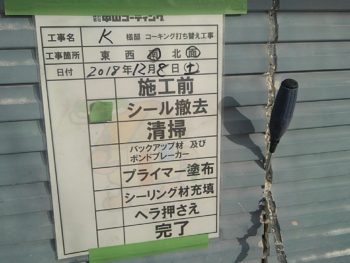 中山コーティング
工事名 K 様邸 コーキング打ち替え工事
工事箇所 東 西 南 北 面
日付 2018年12月8日(土)
施工前
シール撤去
清掃
バックアップ材 及び
ボンドブレーカー
プライマー塗布
シーリング材充填
ヘラ押さえ
完了